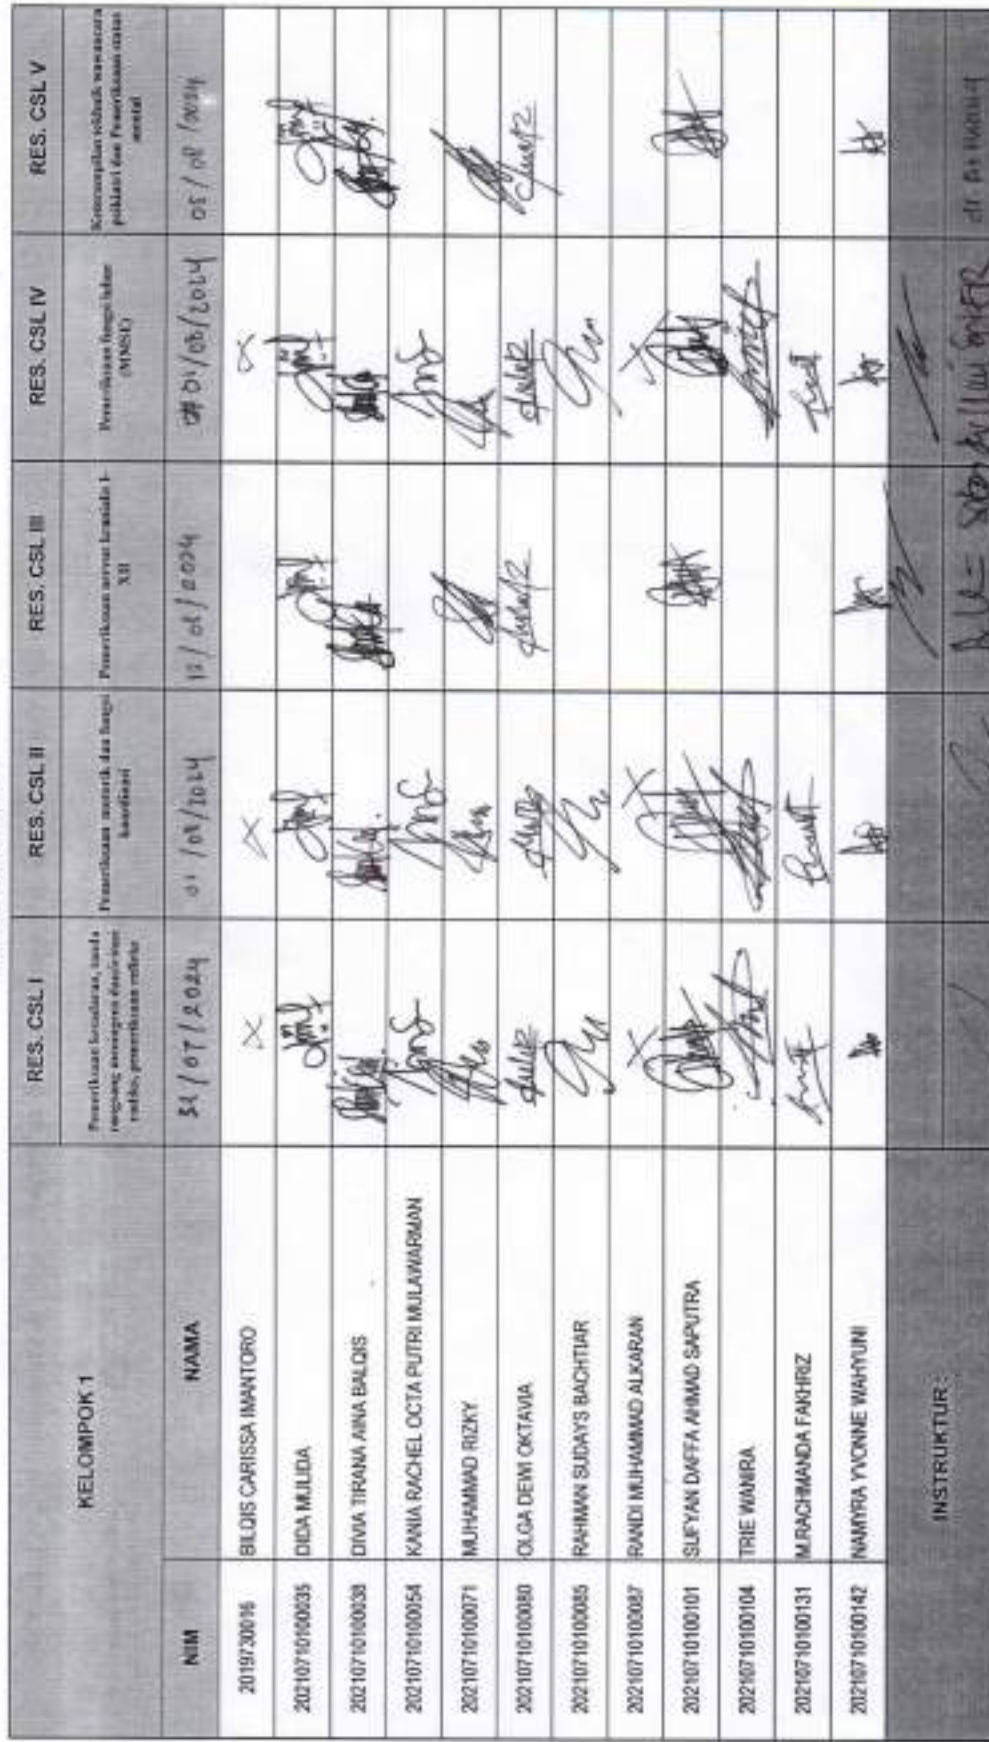 KELOMPOK 1
RES. CSL I
RES. CSL II
RES. CSL III
RES. CSL IV
RES. CSL V
Pemeriksaan kesadaran, tanda
rangsang meningeal
radiks, pemeriksaan refleks
Pemeriksaan motorik dan fungsi
koordinasi
Pemeriksaan nervus kranialis I-
XII
Pemeriksaan fungsi luhur
(MMSE)
Keterampilan tekhnik wawancara
psikiatri dan Pemeriksaan status
mental
NIM
NAMA
31/07/2024
01/08/2024
12/08/2024
01/08/2024
05/08/2024
2019730016 BILQIS CARISSA IMANTORO
20210710100035 DIDA MULIDA
20210710100038 DIVIA TIRANA AINA BALQIS
20210710100054 KANIA RACHEL OCTA PUTRI MULAWARMAN
20210710100071 MUHAMMAD RIZKY
20210710100080 OLGA DEWI OKTAVIA
20210710100085 RAHMAN SUDAYS BACHTIAR
20210710100087 RANDI MUHAMMAD ALKARAN
20210710100101 SUFYAN DAFFA AHMAD SAPUTRA
20210710100104 TRIE WANIRA
20210710100131 M.RACHMANDA FAKHRIZ
20210710100142 NAMYRA YVONNE WAHYUNI
INSTRUKTUR :